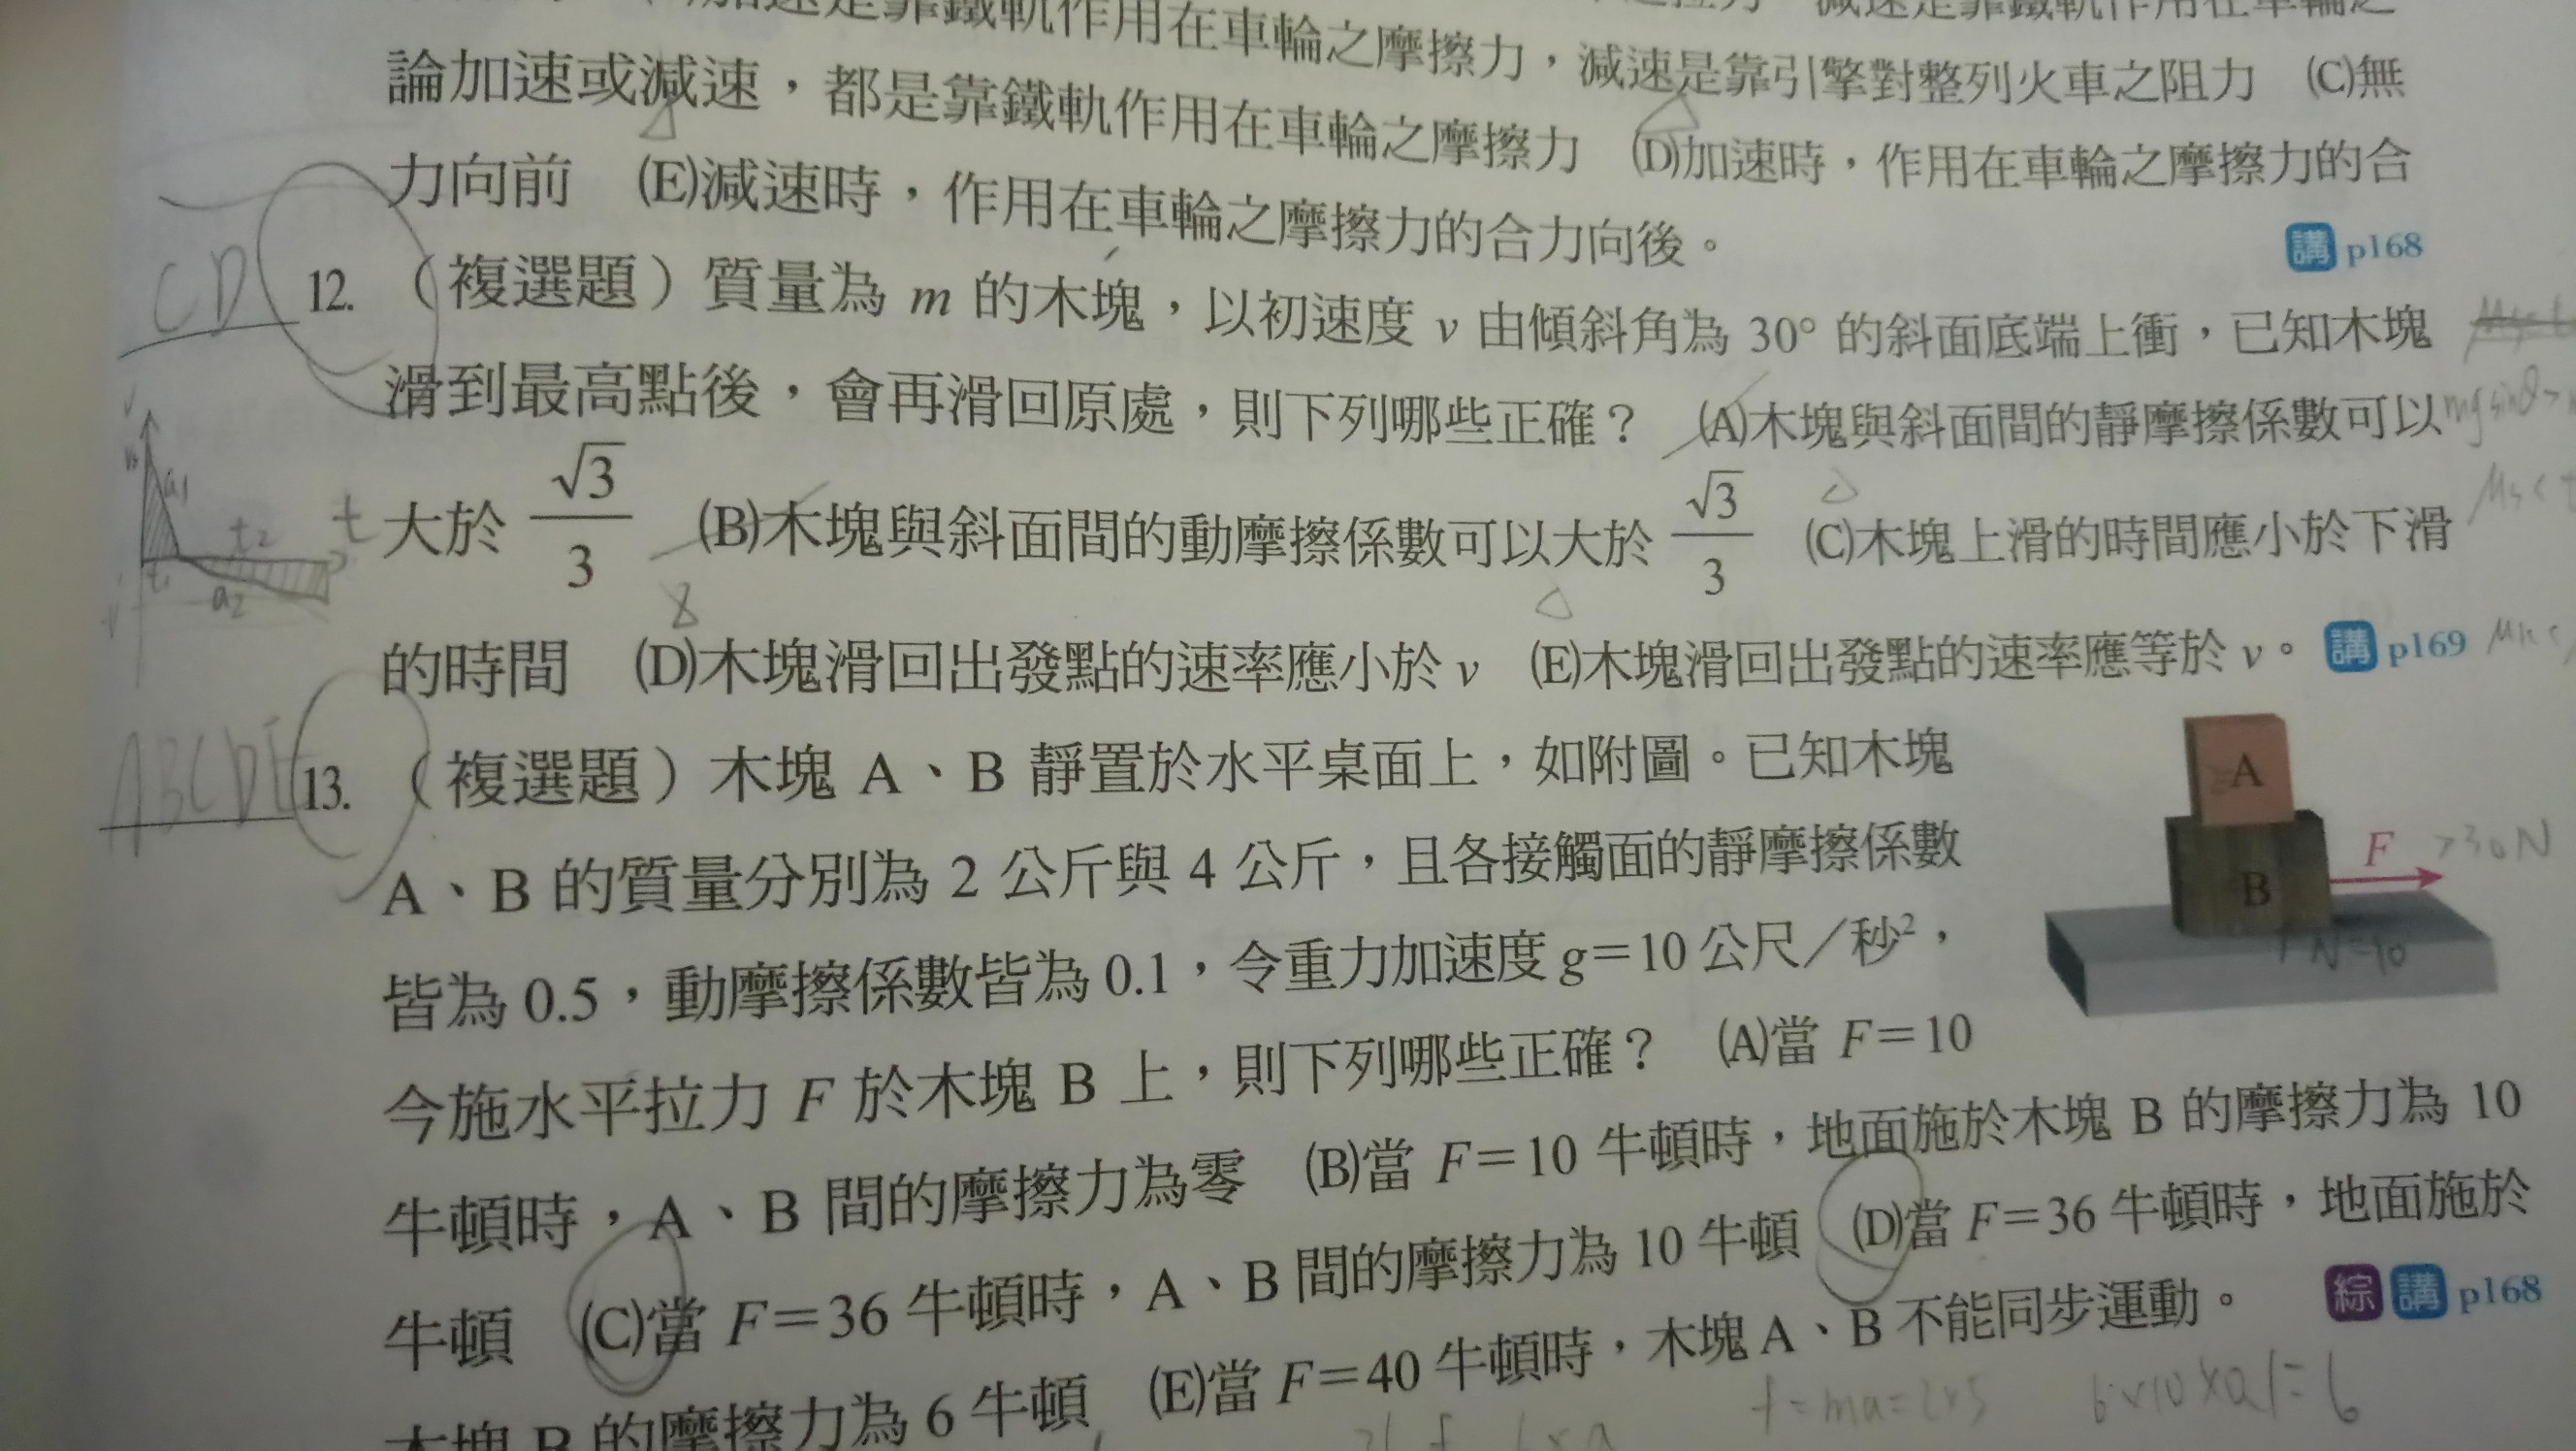 加速是靠鐵軌作用在車輪之摩擦力，減速是靠引擎對整列火車之阻力 (C)無
論加速或減速，都是靠鐵軌作用在車輪之摩擦力 (D)加速時，作用在車輪之摩擦力的合
力向前 (E)減速時，作用在車輪之摩擦力的合力向後。 講 p168
CD 12. （複選題）質量為 m 的木塊，以初速度 v 由傾斜角為 30° 的斜面底端上衝，已知木塊
滑到最高點後，會再滑回原處，則下列哪些正確？ (A)木塊與斜面間的靜摩擦係數可以
大於 √3/3 (B)木塊與斜面間的動摩擦係數可以大於 √3/3 (C)木塊上滑的時間應小於下滑
的時間 (D)木塊滑回出發點的速率應小於 v (E)木塊滑回出發點的速率應等於 v。 講 p169
a1
t2 t
t1
a2
mg sinθ >
ABCDE 13. （複選題）木塊 A、B 靜置於水平桌面上，如附圖。已知木塊
A、B 的質量分別為 2 公斤與 4 公斤，且各接觸面的靜摩擦係數
皆為 0.5，動摩擦係數皆為 0.1，令重力加速度 g＝10 公尺／秒²，
今施水平拉力 F 於木塊 B 上，則下列哪些正確？ (A)當 F＝10
牛頓時，A、B 間的摩擦力為零 (B)當 F＝10 牛頓時，地面施於木塊 B 的摩擦力為 10
牛頓 (C)當 F＝36 牛頓時，A、B 間的摩擦力為 10 牛頓 (D)當 F＝36 牛頓時，地面施於
木塊 B 的摩擦力為 6 牛頓 (E)當 F＝40 牛頓時，木塊 A、B 不能同步運動。 綜 講 p168
A
B
F >30N
f=ma=2×5
6×10×0.1=6